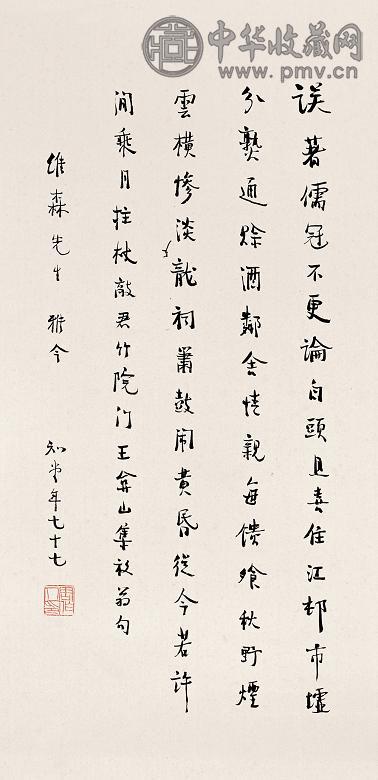 中华收藏网
www.pmv.cn
誤著儒冠不更論白頭且喜住江邨市墟
分熟通賒酒鄰舍情親每饋飧秋野煙
雲橫慘淡龍祠簫鼓鬧黃昏從今若許
閒乘月拄杖敲君竹院门王弇山集放翁句
維森先生雅令
知堂年七十七